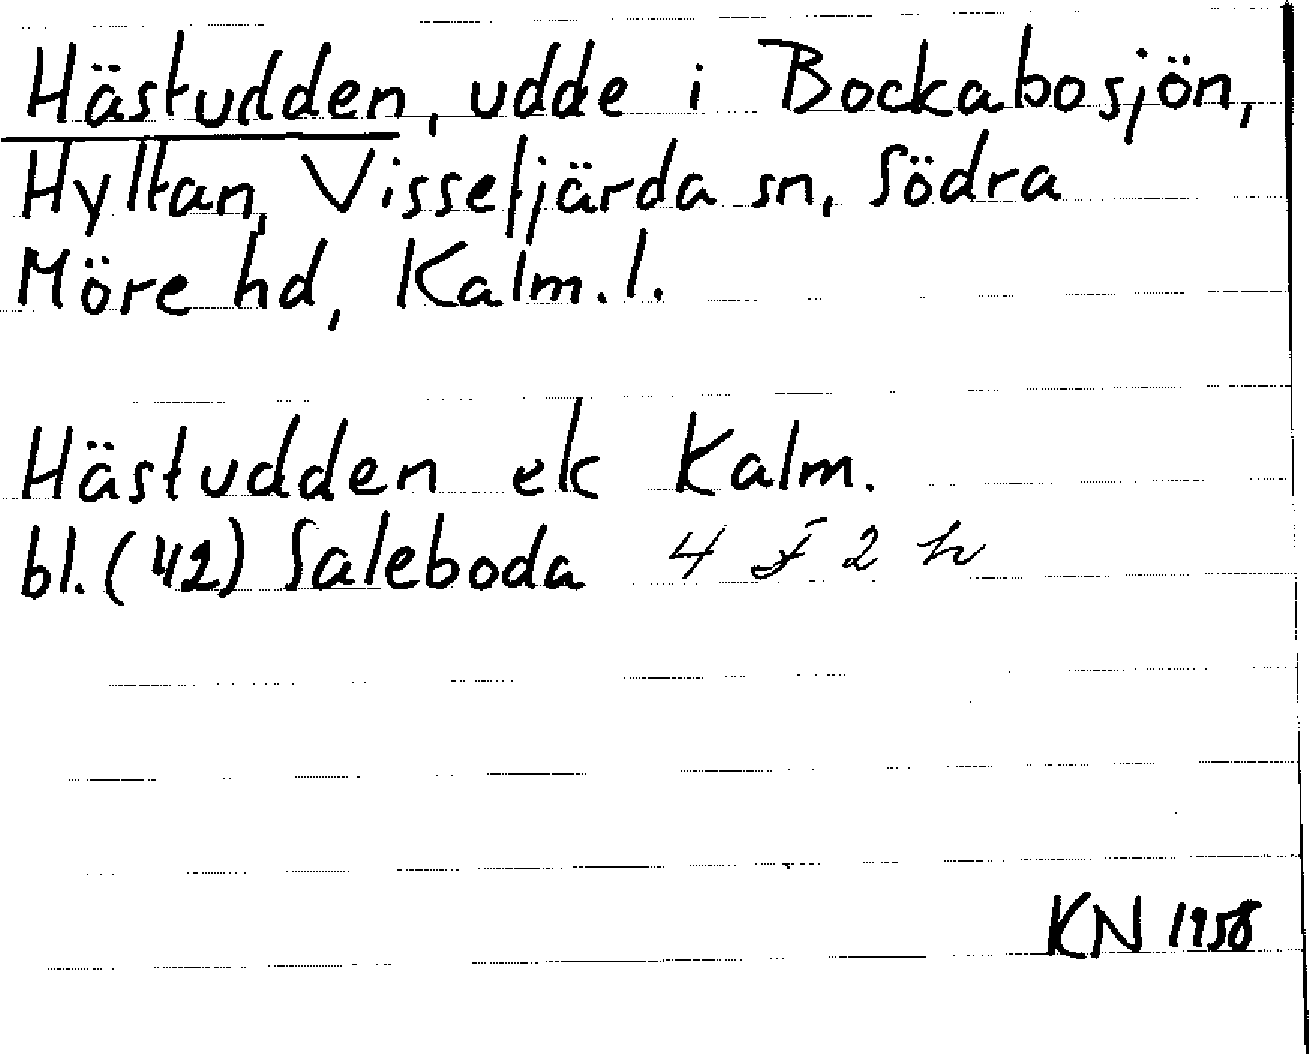 Hästudden, udde i Bockabosjön,
Hyltan, Vissefjärda sn, Södra
Möre hd, Kalm. l.
Hästudden ek Kalm.
bl. (42) Saleboda 4 F 2 h
KN 1958